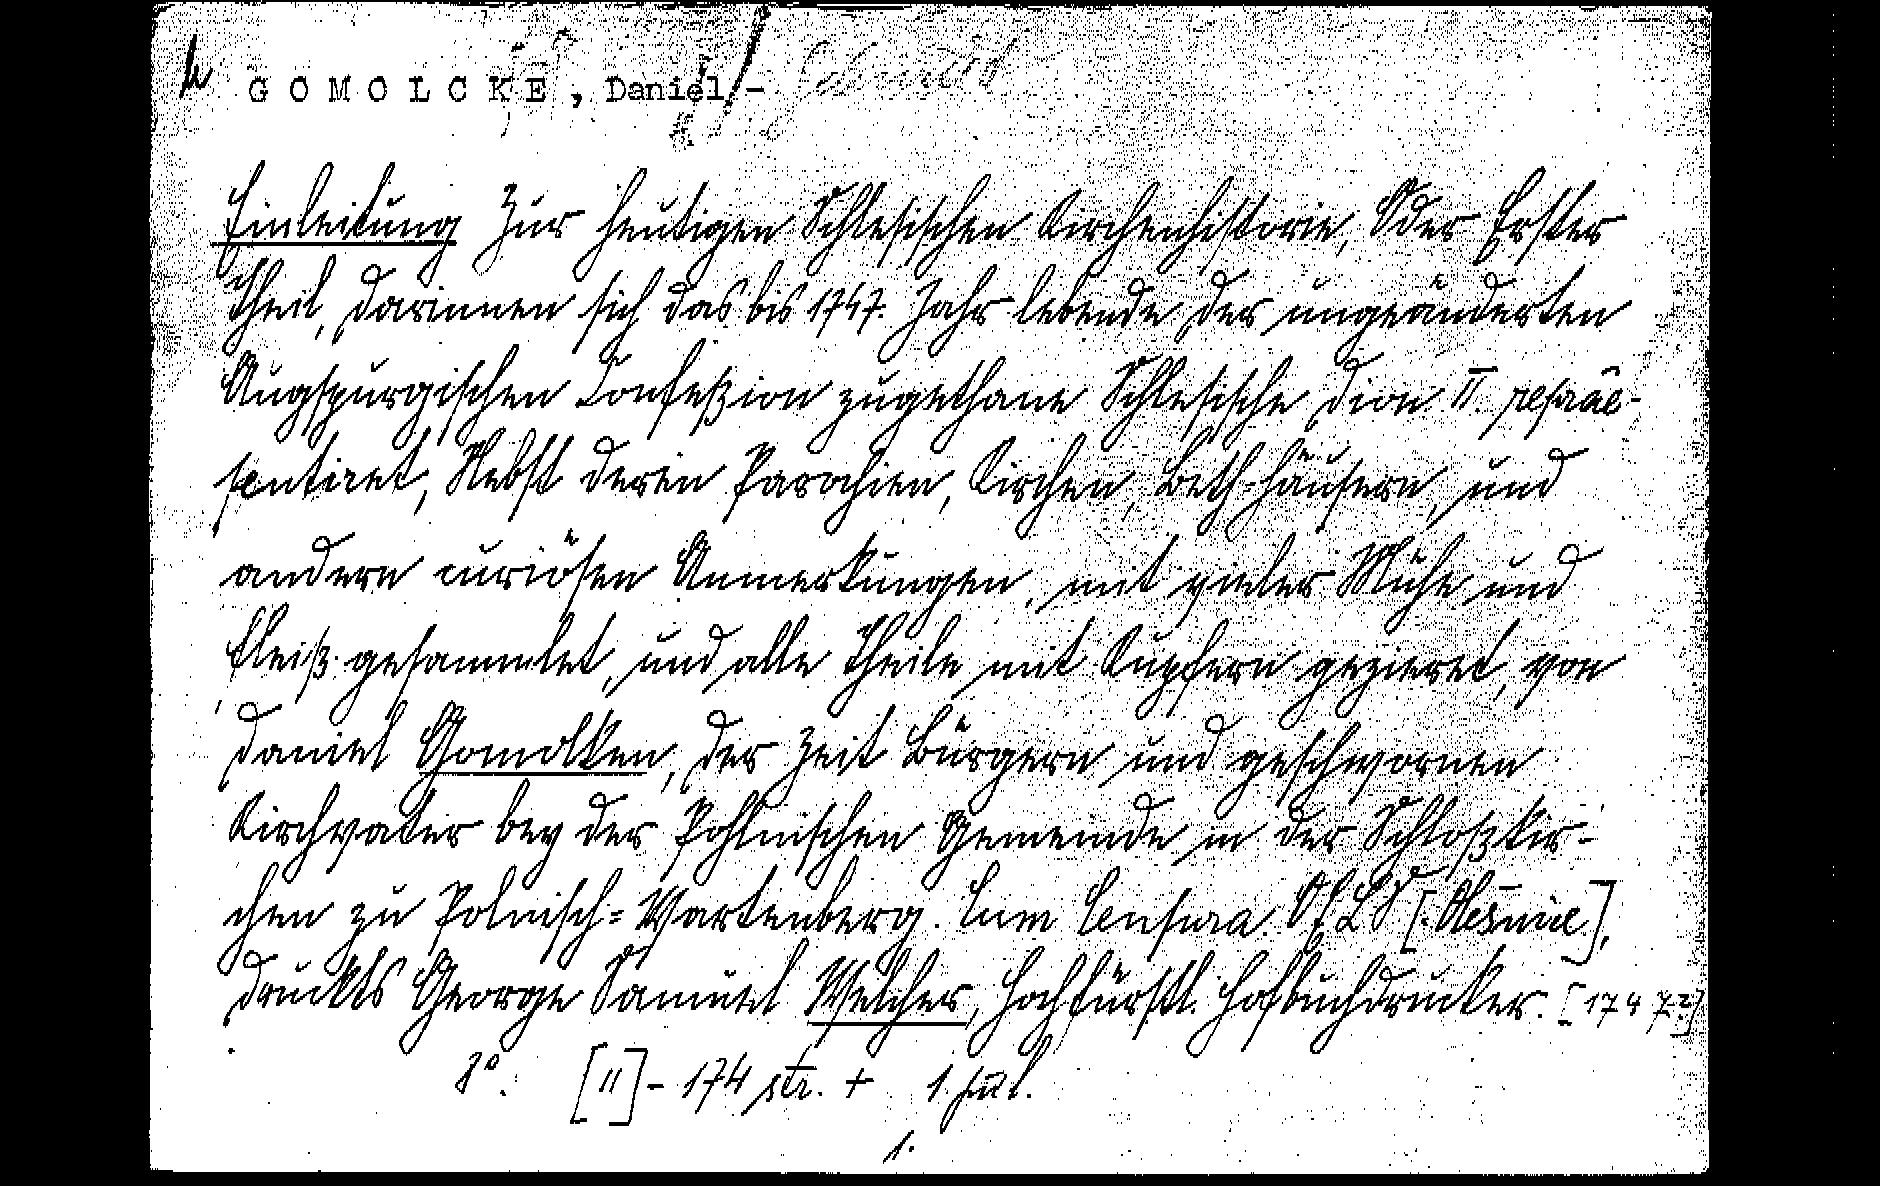 GOMOLCKE, Daniel/-
Einleitung Zur heutigen Schlesischen Kirchenhistorie, Oder Erster
Theil, darinnen sich das bis 1747. Jahr lebende der ungeänderten
Augspurgischen Confeßion zugethane Schlesische Zion II. repräe-
sentiret, Nebst deren Parochien, Kirchen, Beth-häusern, und
andern curiösen Anmerkungen, mit vieler Mühe und
Fleiß gesammlet, und alle Theile mit Kupfern gezieret, von
Daniel Gomolken, der Zeit Bürgern und geschwornen
Kirchvater bey der Pohlnischen Gemeinde in der Schloßkir-
chen zu Polnisch=Wartenberg. Cum Censura. [Oleśnice],
druckts George Samuel Welcher, Hochfürstl. Hofbuchdrucker. [1747?]
8°. [II] - 174 str. +
1.